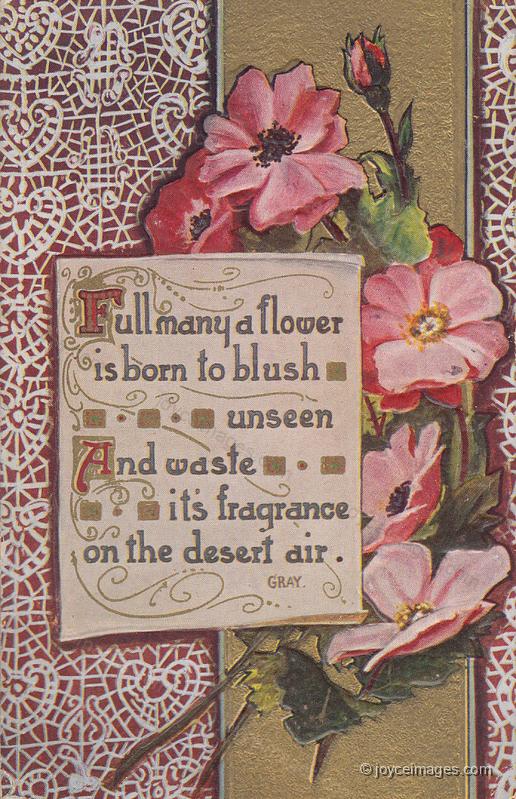 Full many a flower
is born to blush
unseen
And waste
it's fragrance
on the desert air.
GRAY.
© joyceimages.com